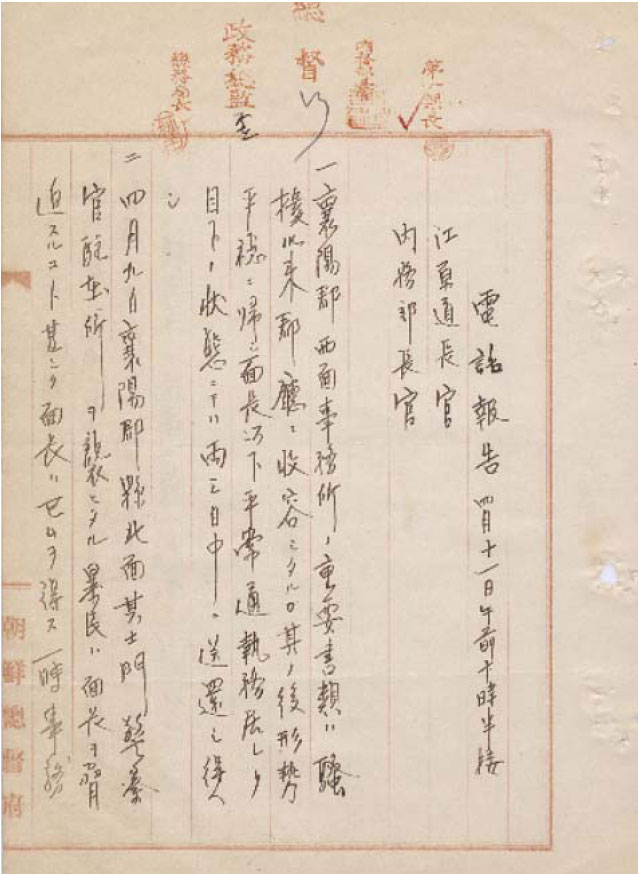 總督
政務總監
電話報告 四月十一日午前十時半接
江原道長官
内務部長官
一 襄陽郡西面事務所ノ重要書類ハ騷
擾以来郡廳ニ收容シタルモ其ノ後形勢
平穩ニ帰シ面長以下平常通執務居レリ
目下ノ状態ニテハ両三日中ニ送還シ得ヘ
シ
二 四月九日襄陽郡縣北面其士門警察
官駐在所ヲ襲ヒタル暴民ハ面長ヲ脅
迫スルコト甚シク面長ハ已ムヲ得ス一時事務
朝鮮總督府